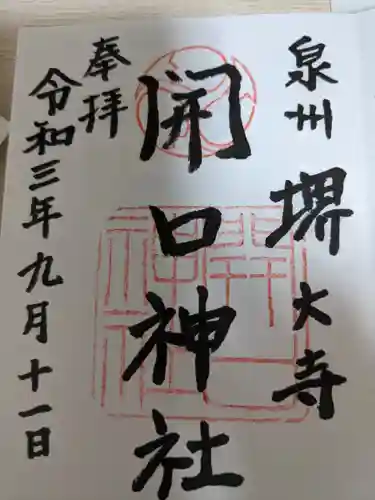 泉州 堺 大寺
開口神社
奉拝
令和三年九月十一日